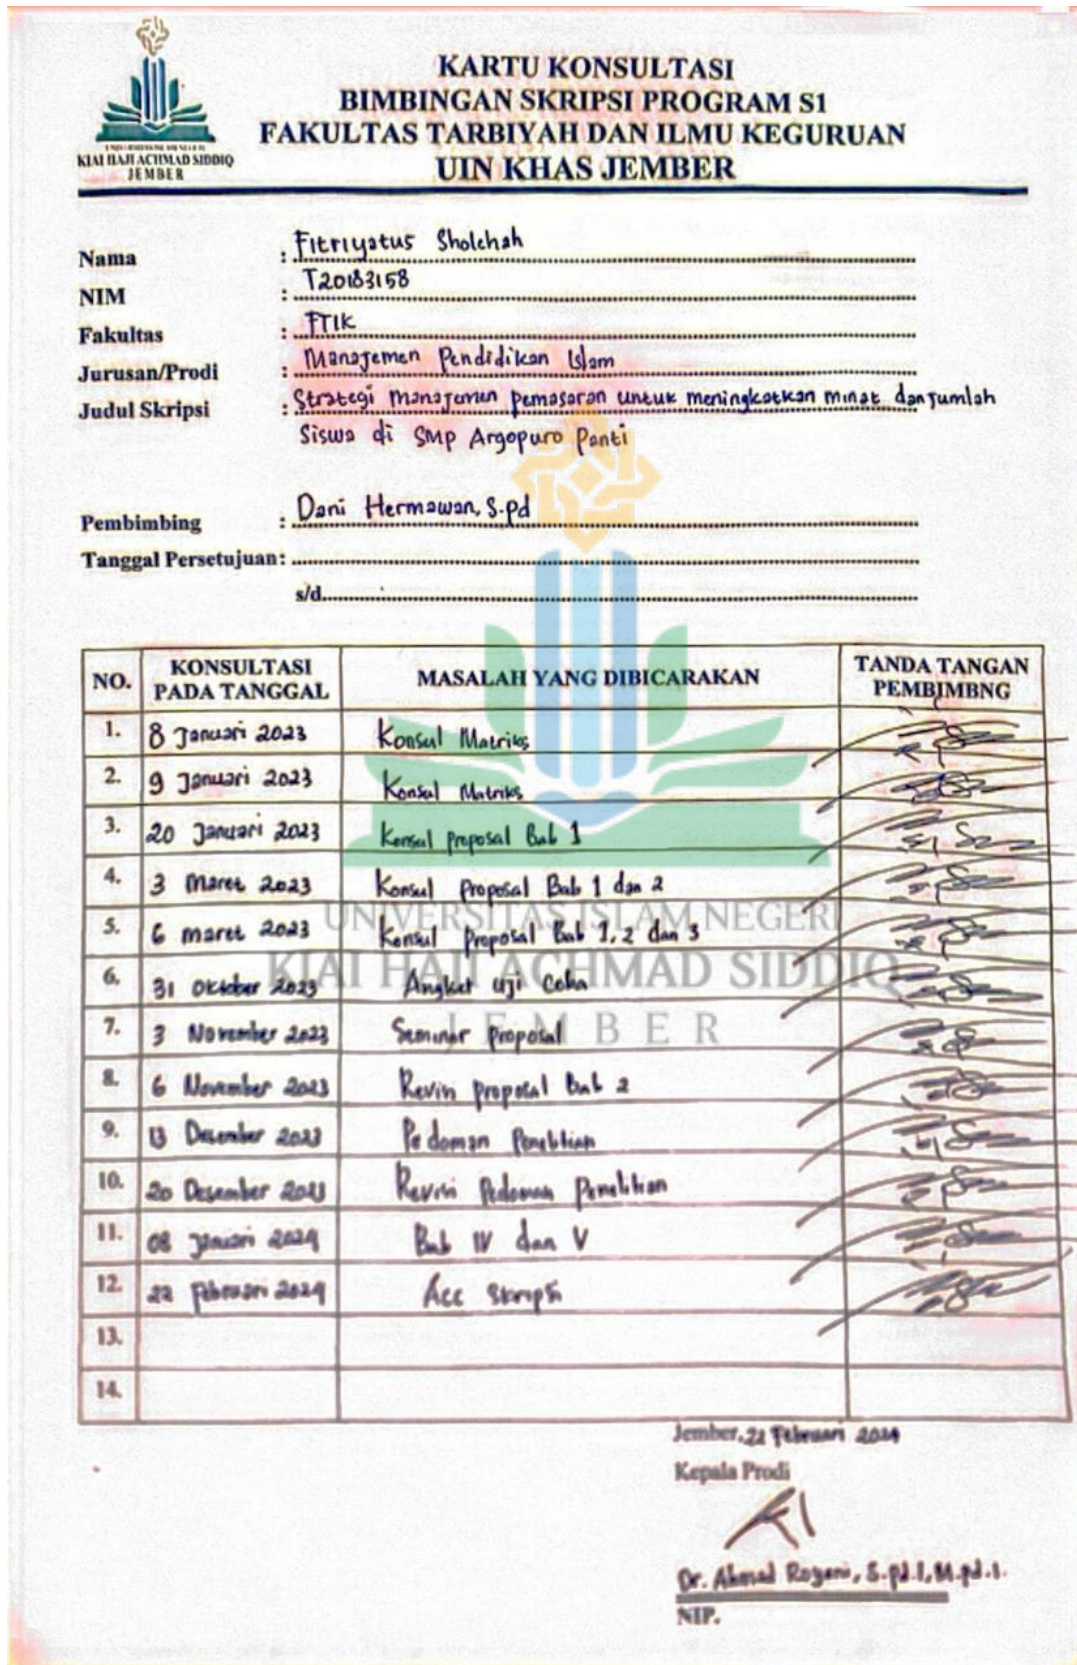 KARTU KONSULTASI
BIMBINGAN SKRIPSI PROGRAM S1
FAKULTAS TARBIYAH DAN ILMU KEGURUAN
UIN KHAS JEMBER
KIAI HAJI ACHMAD SIDDIQ
JEMBER
Nama : Fitriyatus Sholehah
NIM : T20183158
Fakultas : FTIK
Jurusan/Prodi : Manajemen Pendidikan Islam
Judul Skripsi : Strategi manajemen pemasaran untuk meningkatkan minat dan jumlah
Siswa di SMP Argopuro Panti
Pembimbing : Dani Hermawan, S.pd
Tanggal Persetujuan:
s/d
NO. KONSULTASI PADA TANGGAL MASALAH YANG DIBICARAKAN TANDA TANGAN PEMBIMBNG
1. 8 Januari 2023 Konsul Matriks
2. 9 Januari 2023 Konsul Matriks
3. 20 Januari 2023 Konsul proposal Bab 1
4. 3 Maret 2023 Konsul proposal Bab 1 dan 2
5. 6 maret 2023 Konsul proposal Bab 1, 2 dan 3
6. 31 Oktober 2023 Angket uji Coba
7. 3 November 2023 Seminar proposal
8. 6 November 2023 Revisi proposal Bab 2
9. 13 Desember 2023 Pedoman Penelitian
10. 20 Desember 2023 Revisi Pedoman Penelitian
11. 08 Januari 2024 Bab IV dan V
12. 22 Februari 2024 Acc Skripsi
13.
14.
UNIVERSITAS ISLAM NEGERI
KIAI HAJI ACHMAD SIDDIQ
JEMBER
Jember, 22 Februari 2024
Kepala Prodi
Dr. Ahmad Royani, S.pd.I, M.pd.I.
NIP.